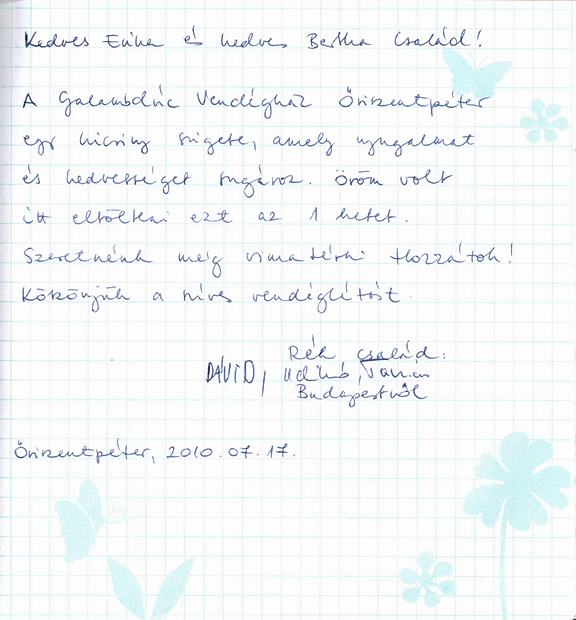 Kedves Emike és kedves Bertha Család!
A Galambdúc Vendégház Őriszentpéter
egy kicsiny szigete, amely nyugalmat
és kedvességet sugároz. Öröm volt
itt eltölteni ezt az 1 hetet.
Szeretnénk még visszatérni Hozzátok!
Köszönjük a szíves vendéglátást.
család:
DÁVID, Ildikó,
Budapestről
Őriszentpéter, 2010.07.17.